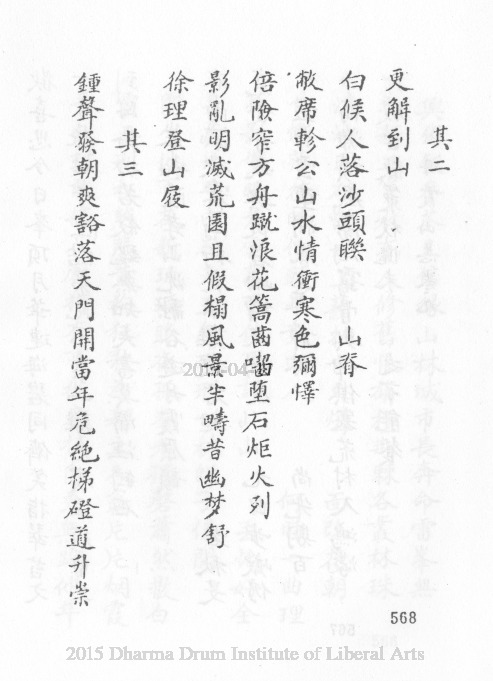 其二
更解到山
白候人落沙頭聯　山脊
敝席軫公山水情衝寒色彌懌
倍險窄方舟蹴浪花篙齒囓墮石炬火列
影亂明滅荒園且假榻風景半疇昔幽梦舒
徐理登山屐
其三
鍾聲發朝爽豁落天門開當年危絶梯磴道升崇
568
2015 Dharma Drum Institute of Liberal Arts